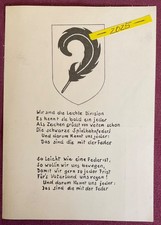 2025
Wir sind die Leichte Division
Es kennt sie bald ein jeder
Als Zeichen grüsst von weitem schon
Die schwarze Spielhahnfeder!
Und darum kennt uns jeder:
Das sind die mit der Feder
So leicht wie eine Feder ist,
So woll'n wir uns bewegen,
Damit wir gern so jeder Frist
Für's Vaterland uns regen!
Und darum kennt uns jeder:
Das sind die mit der Feder